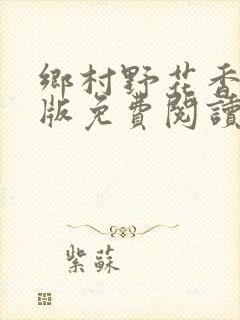 鄉村野花香
版免費閱讀
紫蘇